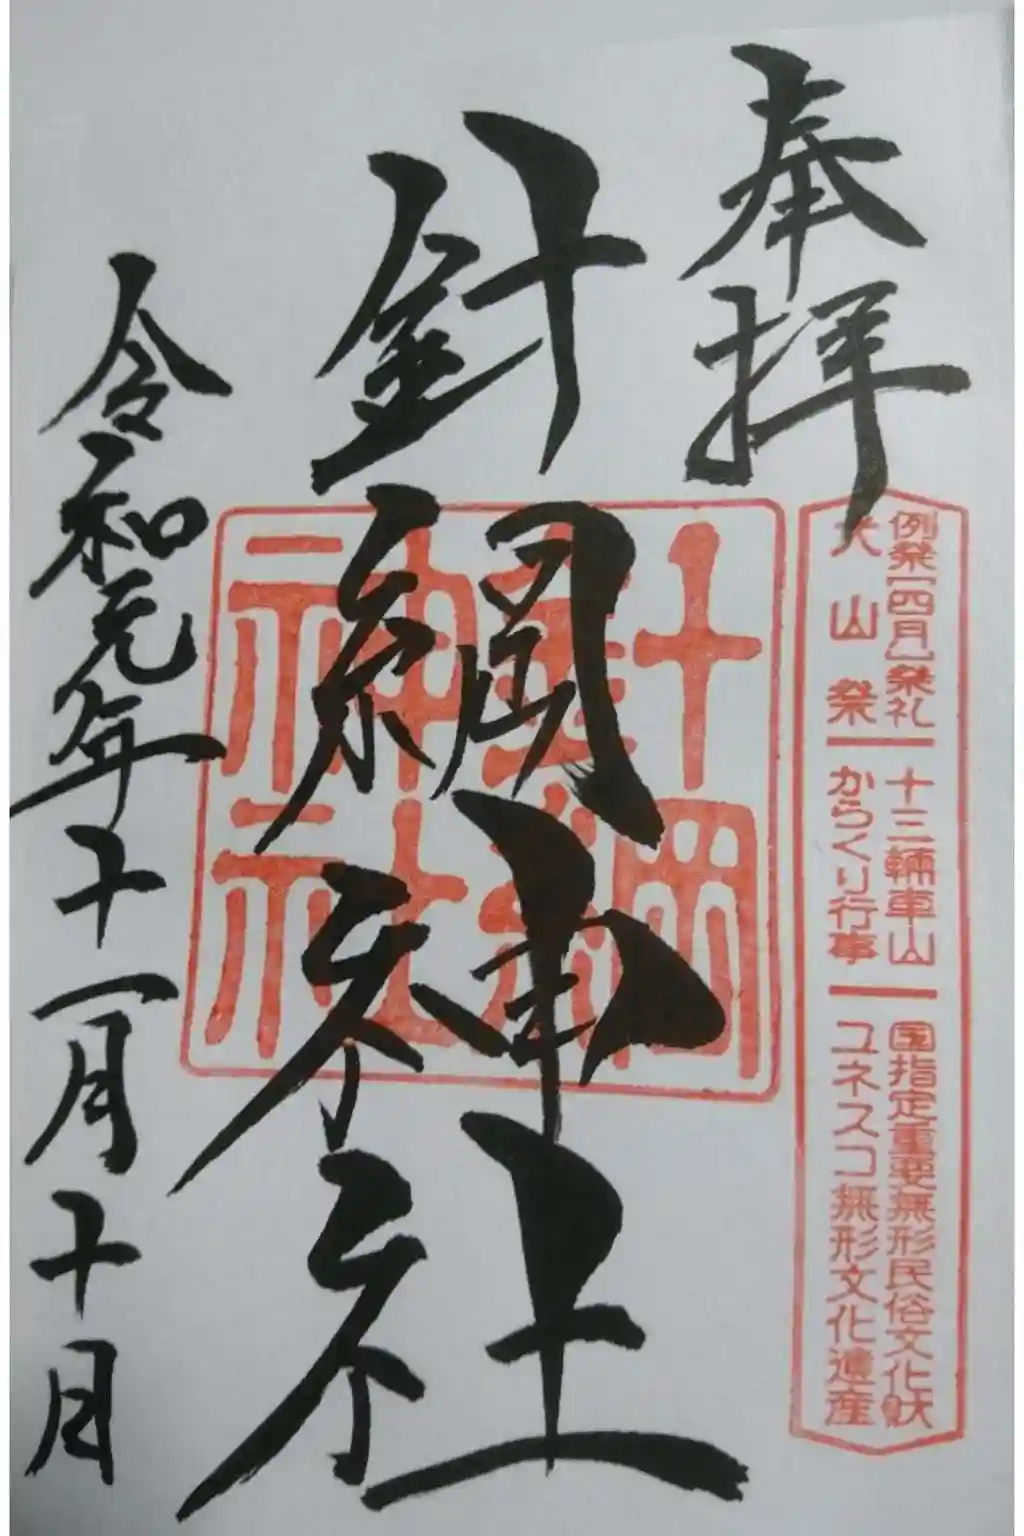 奉拝
例祭[四月]祭礼 十三輛車山 国指定重要無形民俗文化財
犬山祭 からくり行事 ユネスコ無形文化遺産
針綱神社
針綱神社
令和元年十一月十日